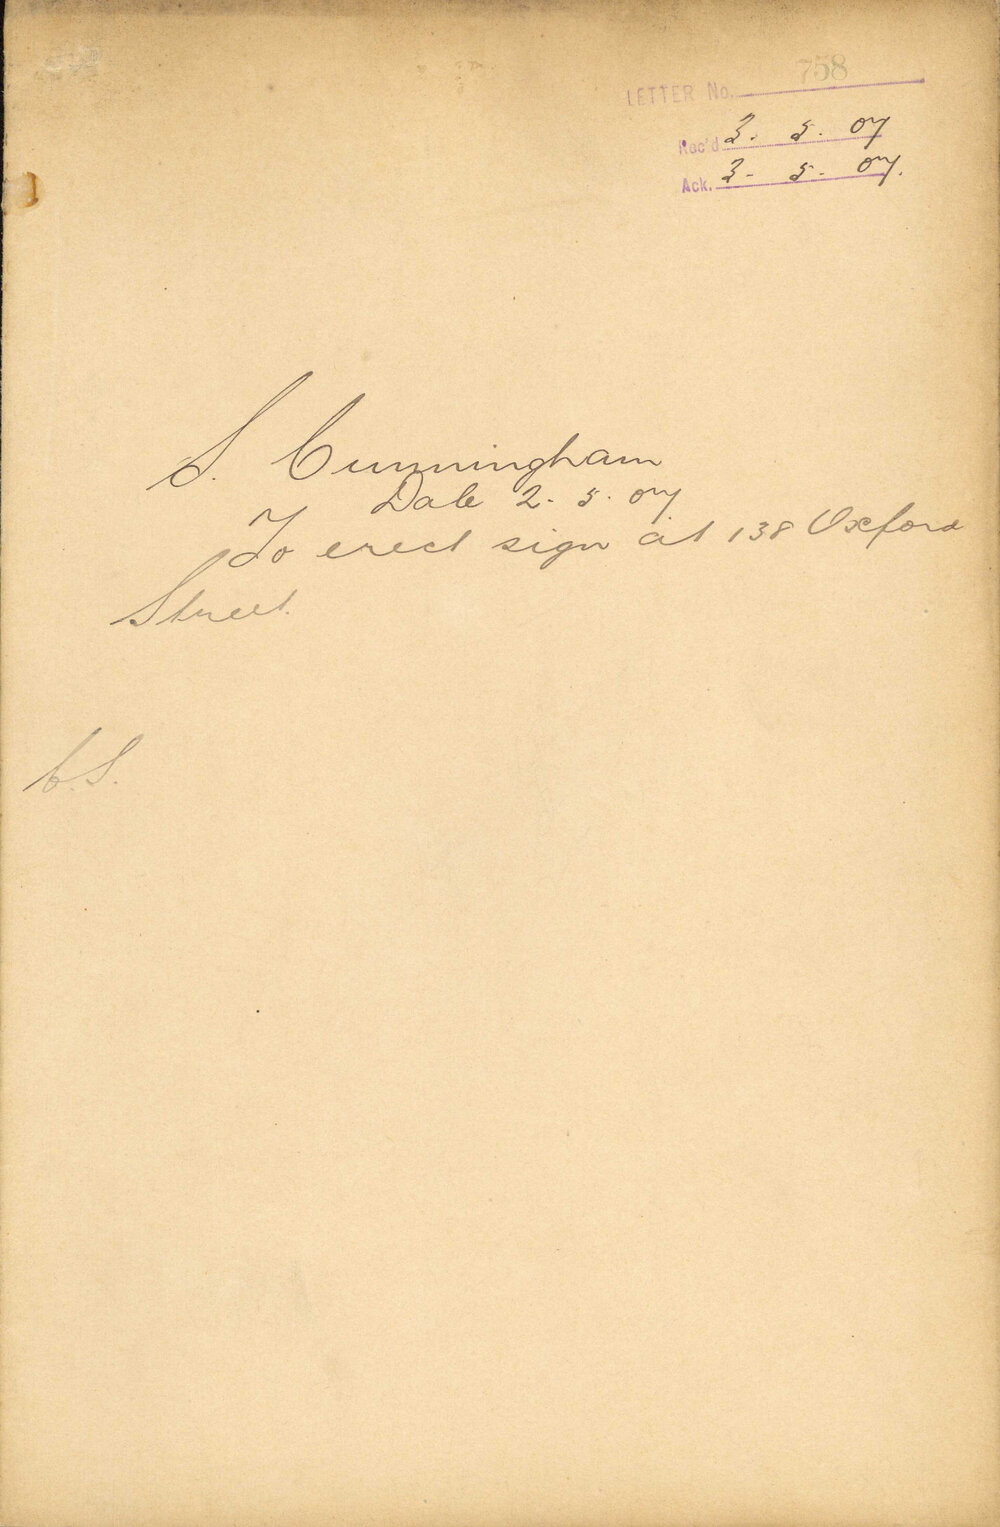 LETTER No. 758
Rec'd 3. 5. 07
Ack. 3. 5. 07.
S. Cunningham
Date 2. 5. 07
To erect sign at 138 Oxford
Street.
C.S.